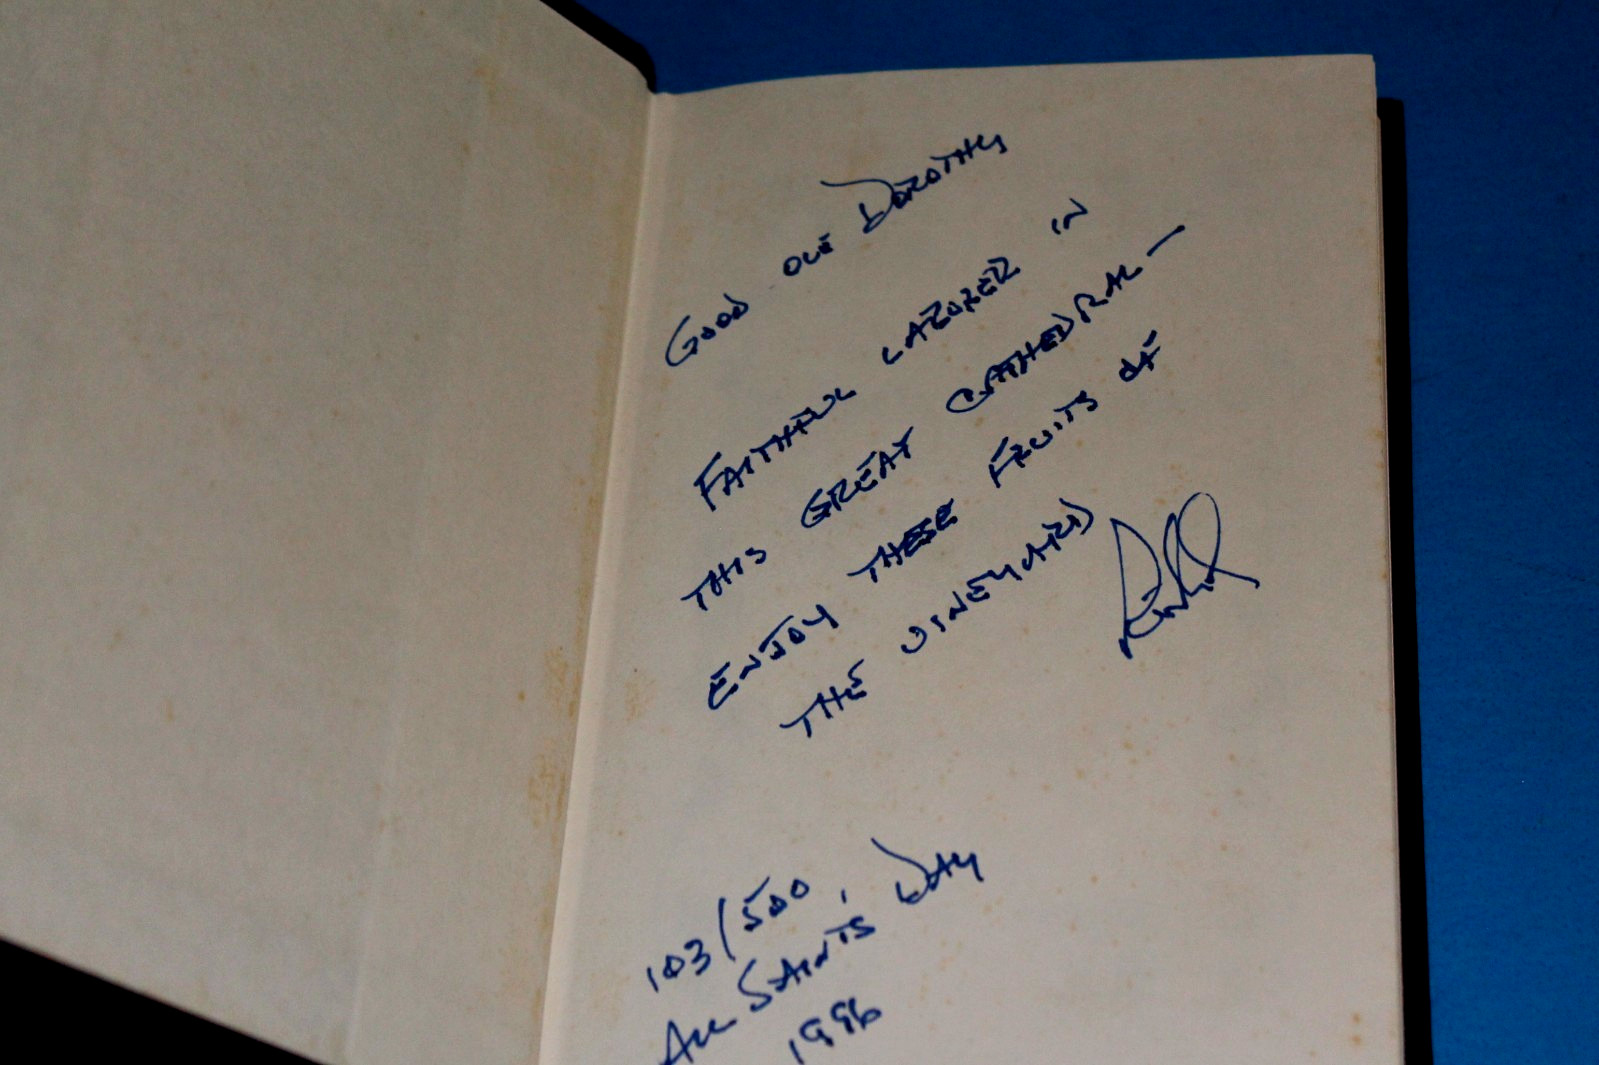 GOOD OLE DOROTHY
FAITHFUL LABORER IN
THIS GREAT CATHEDRAL —
ENJOY THESE FRUITS OF
THE VINEYARD
103/500,
ALL SAINTS' DAY
1996